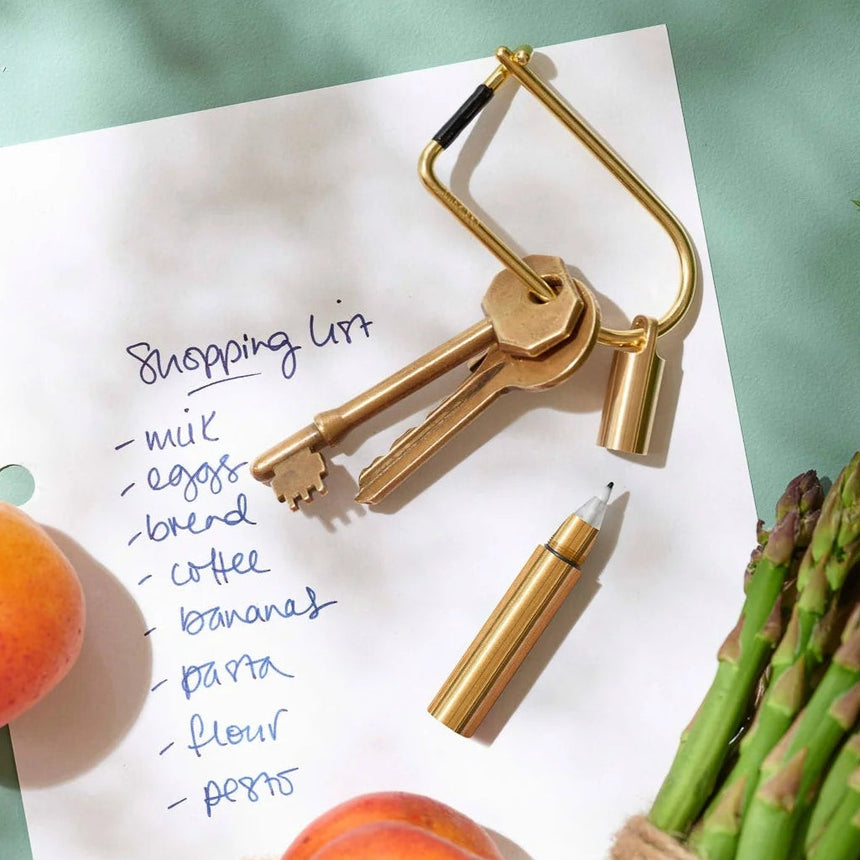 Shopping list
- milk
- eggs
- bread
- coffee
- bananas
- pasta
- flour
- pesto